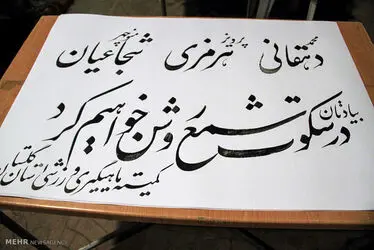 محمد دهقانی پرویز هرمزی منوچهر شجاعیان
بیادتان
در سکوت شمع روشن خواهیم کرد
کمیته پاهیگیری ورزشی استان گلستان
MEHR NEWS AGENCY